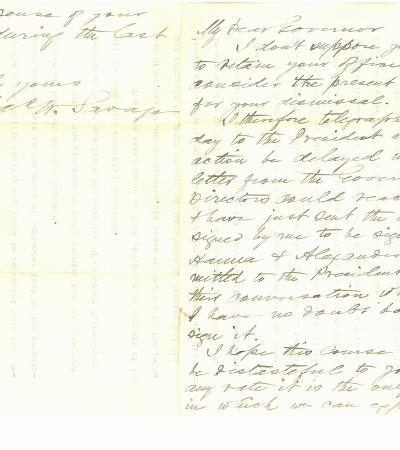 ouse of your
during the last
yours
W. Savage
My Dear Governor
I dont suppose y
to retain your office
consider the present
for your dismissal.
I therefore telegraph
day to the President a
action be delayed u
letter from the Gover
Directors could reac
& have just sent the
signed by me to be sig
Hanna & Alexander
mitted to the President
their conversation
I have no doubt bo
sign it.
I hope this course
be distasteful to yo
any rate it is the on
in which we can exp